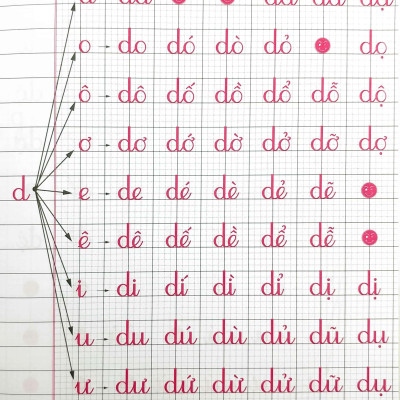 o - do dó dò dỏ dọ
ô - dô dố dồ dổ dỗ dộ
ơ - dơ dớ dờ dở dỡ dợ
d e - de dé dè dẻ dẽ
ê - dê dế dề dể dễ
i - di dí dì dỉ dị dị
u - du dú dù dủ dũ dụ
ư - dư dứ dừ dử dữ dụ